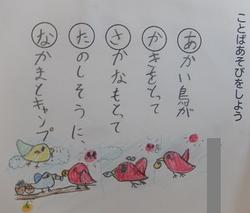 ことばあそびをしよう
あかい鳥が
かきをとって
さかなもとって
たのしそうに、
なかまとキャンプ